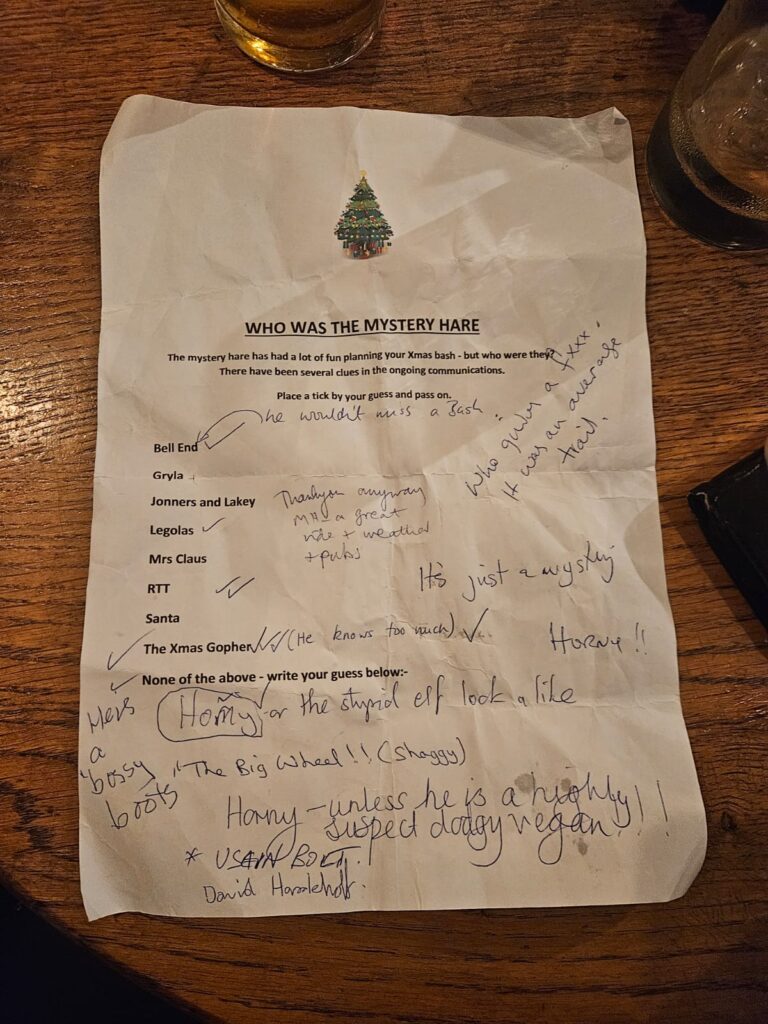 WHO WAS THE MYSTERY HARE
The mystery hare has had a lot of fun planning your Xmas bash - but who were they?
There have been several clues in the ongoing communications.
Place a tick by your guess and pass on.
he wouldn't miss a Bash.
Who gives a fxxx.
It was an average
trail.
Bell End
Gryla
Jonners and Lakey
Thankyou anyway
a great
+ weather
+ pubs
Legolas ✓
Mrs Claus
It's just a mystery
RTT ✓✓
Santa
The Xmas Gopher ✓✓ (He knows too much) ✓
Horny !!
None of the above - write your guess below:-
Horny or the stupid elf look a like
He's
a
bossy
boots
"The Big Wheel !! (Shaggy)
Horny - unless he is a highly
suspect dodgy vegan !!!
* USAIN BOLT.
David Hasslehoff.